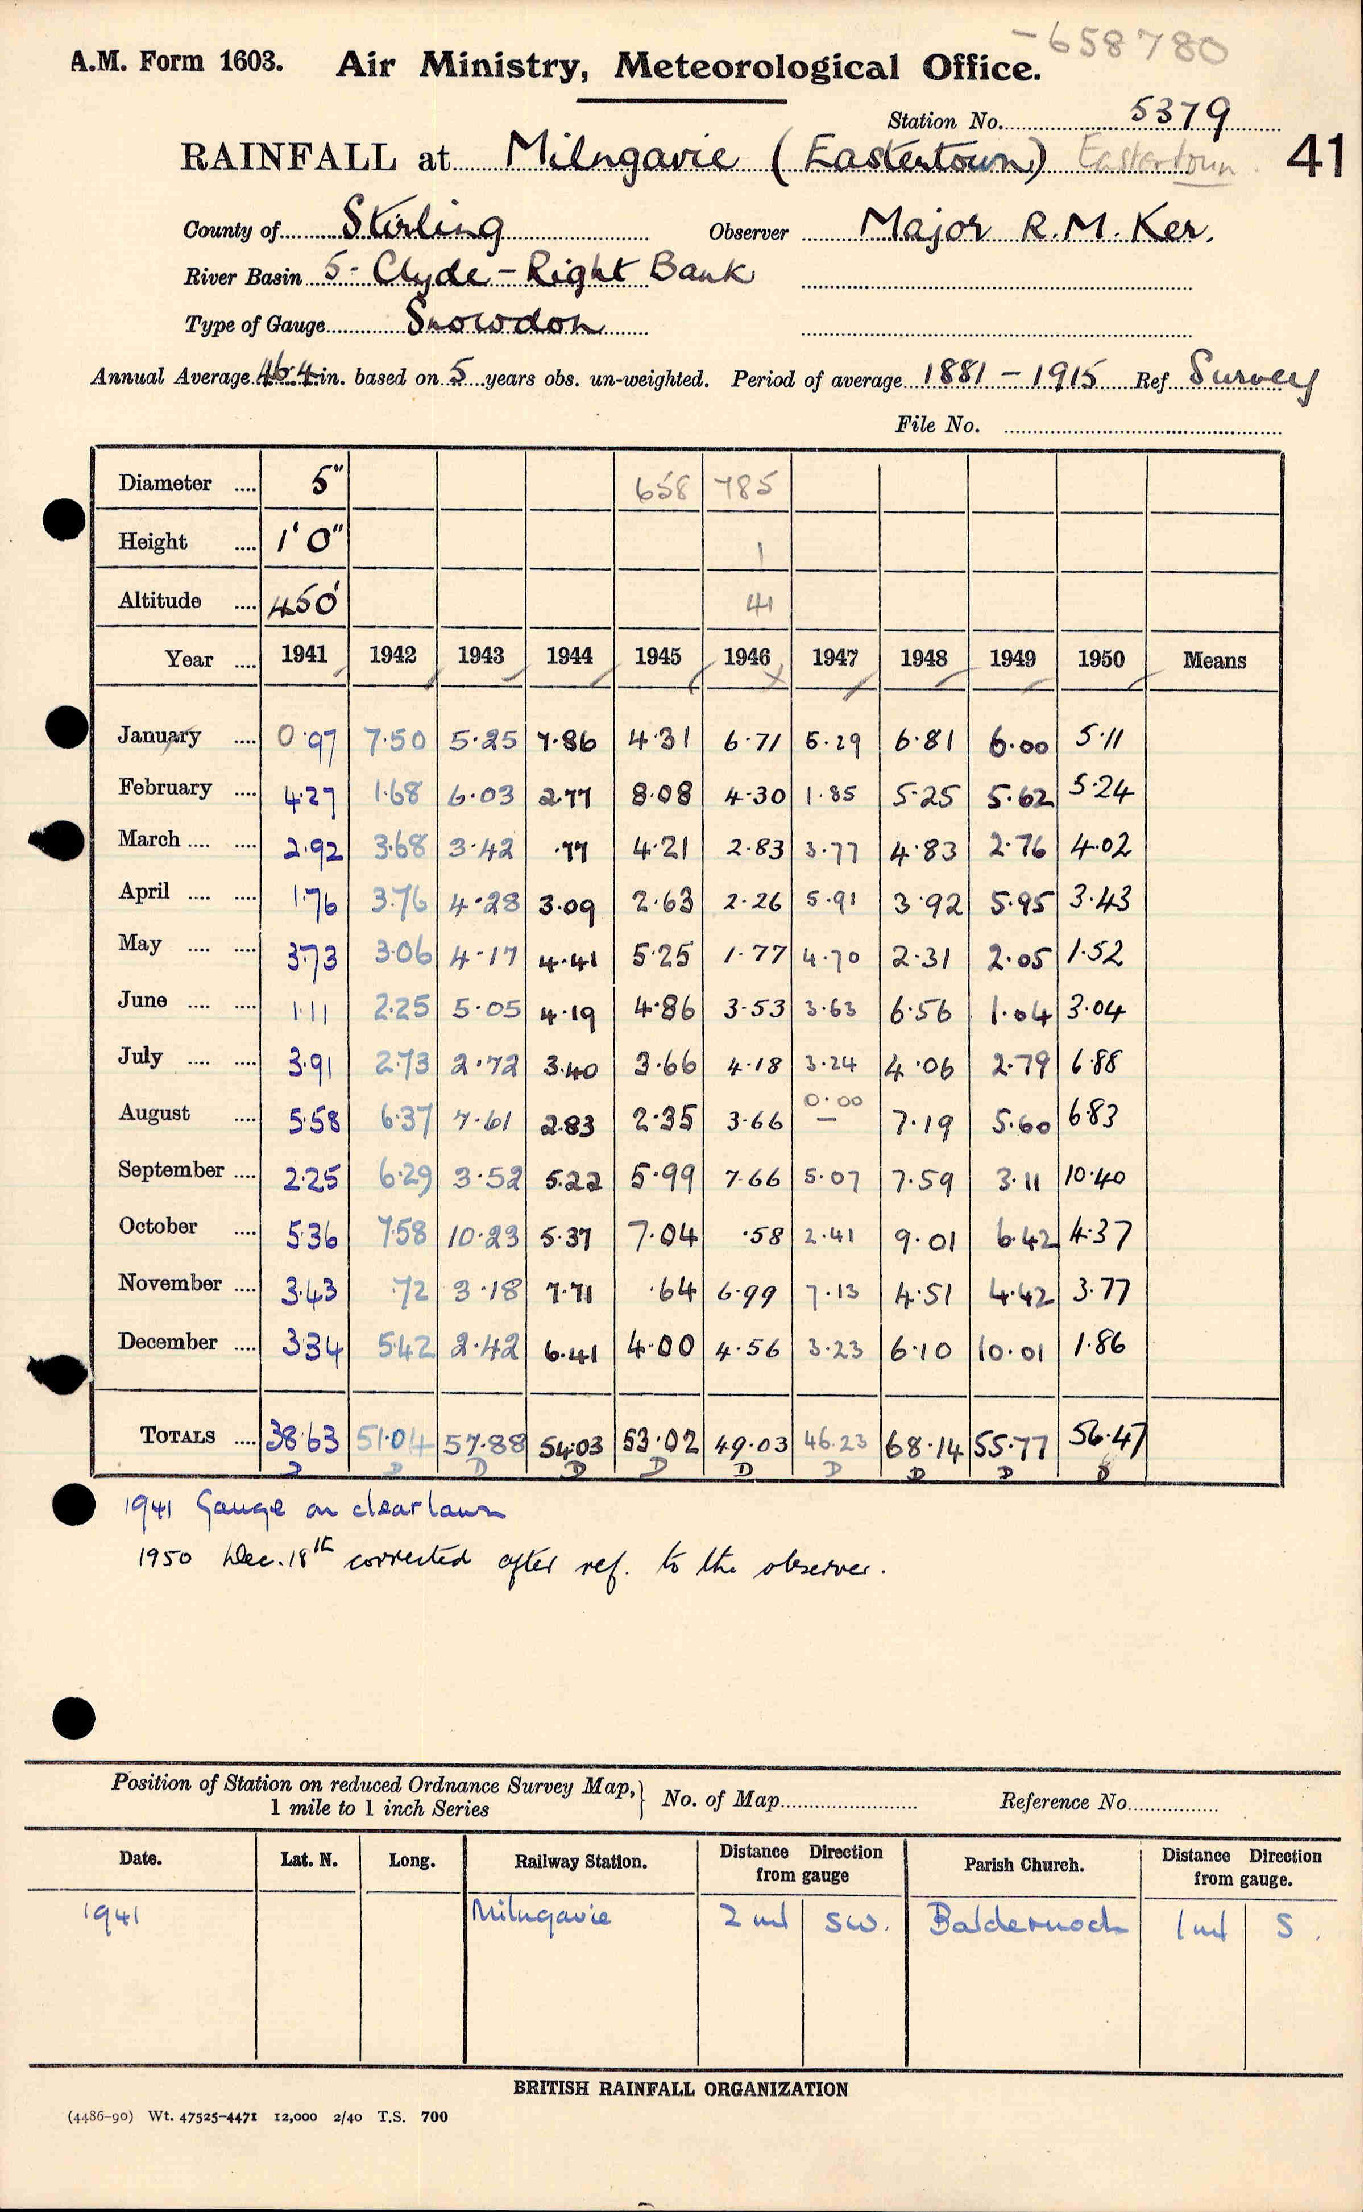 -658780
A.M. Form 1603. Air Ministry, Meteorological Office.
Station No. 5379
RAINFALL at Milngavie (Eastertown) Eastertoun 41
County of Stirling Observer Major R.M. Ker.
River Basin 5 - Clyde - Right Bank
Type of Gauge Snowdon
Annual Average 46.4 in. based on 5 years obs. un-weighted. Period of average 1881 - 1915 Ref Survey
File No.
Diameter .... 5" 658 785
Height .... 1' 0" 1
Altitude .... 450' 41
Year .... 1941 1942 1943 1944 1945 1946 1947 1948 1949 1950 Means
January .... 0.97 7.50 5.25 7.86 4.31 6.71 5.29 6.81 6.00 5.11
February .... 4.27 1.68 6.03 2.77 8.08 4.30 1.85 5.25 5.62 5.24
March .... .... 2.92 3.68 3.42 .77 4.21 2.83 3.77 4.83 2.76 4.02
April .... .... 1.76 3.76 4.28 3.09 2.63 2.26 5.91 3.92 5.95 3.43
May .... .... 3.73 3.06 4.17 4.41 5.25 1.77 4.70 2.31 2.05 1.52
June .... .... 1.11 2.25 5.05 4.19 4.86 3.53 3.63 6.56 1.04 3.04
July .... .... 3.91 2.73 2.72 3.40 3.66 4.18 3.24 4.06 2.79 6.88
August .... 5.58 6.37 7.61 2.83 2.35 3.66 0.00 — 7.19 5.60 6.83
September .... 2.25 6.29 3.52 5.22 5.99 7.66 5.07 7.59 3.11 10.40
October .... 5.36 7.58 10.23 5.37 7.04 .58 2.41 9.01 6.42 4.37
November .... 3.43 .72 3.18 7.71 .64 6.99 7.13 4.51 4.42 3.77
December .... 3.34 5.42 2.42 6.41 4.00 4.56 3.23 6.10 10.01 1.86
TOTALS .... 38.63 51.04 57.88 54.03 53.02 49.03 46.23 68.14 55.77 56.47
D D D D D D D D D D
1941 Gauge on clear lawn
1950 Dec. 18th corrected after ref. to the observer.
Position of Station on reduced Ordnance Survey Map, 1 mile to 1 inch Series } No. of Map Reference No.
Date. Lat. N. Long. Railway Station. Distance Direction from gauge Parish Church. Distance Direction from gauge.
1941 Milngavie 2 ml SW. Baldernock 1 ml S.
BRITISH RAINFALL ORGANIZATION
(4486-90) Wt. 47525-4471 12,000 2/40 T.S. 700